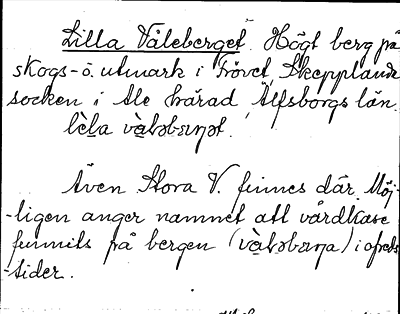 Lilla Våleberget. Högt berg på
skogs- o. utmark i Frövet, Skepplanda
socken i Ale härad Älfsborgs län.
Även Stora V. finnes där. Möj-
-ligen anger namnet att vårdkase
funnits på bergen i ofreds-
-tider.